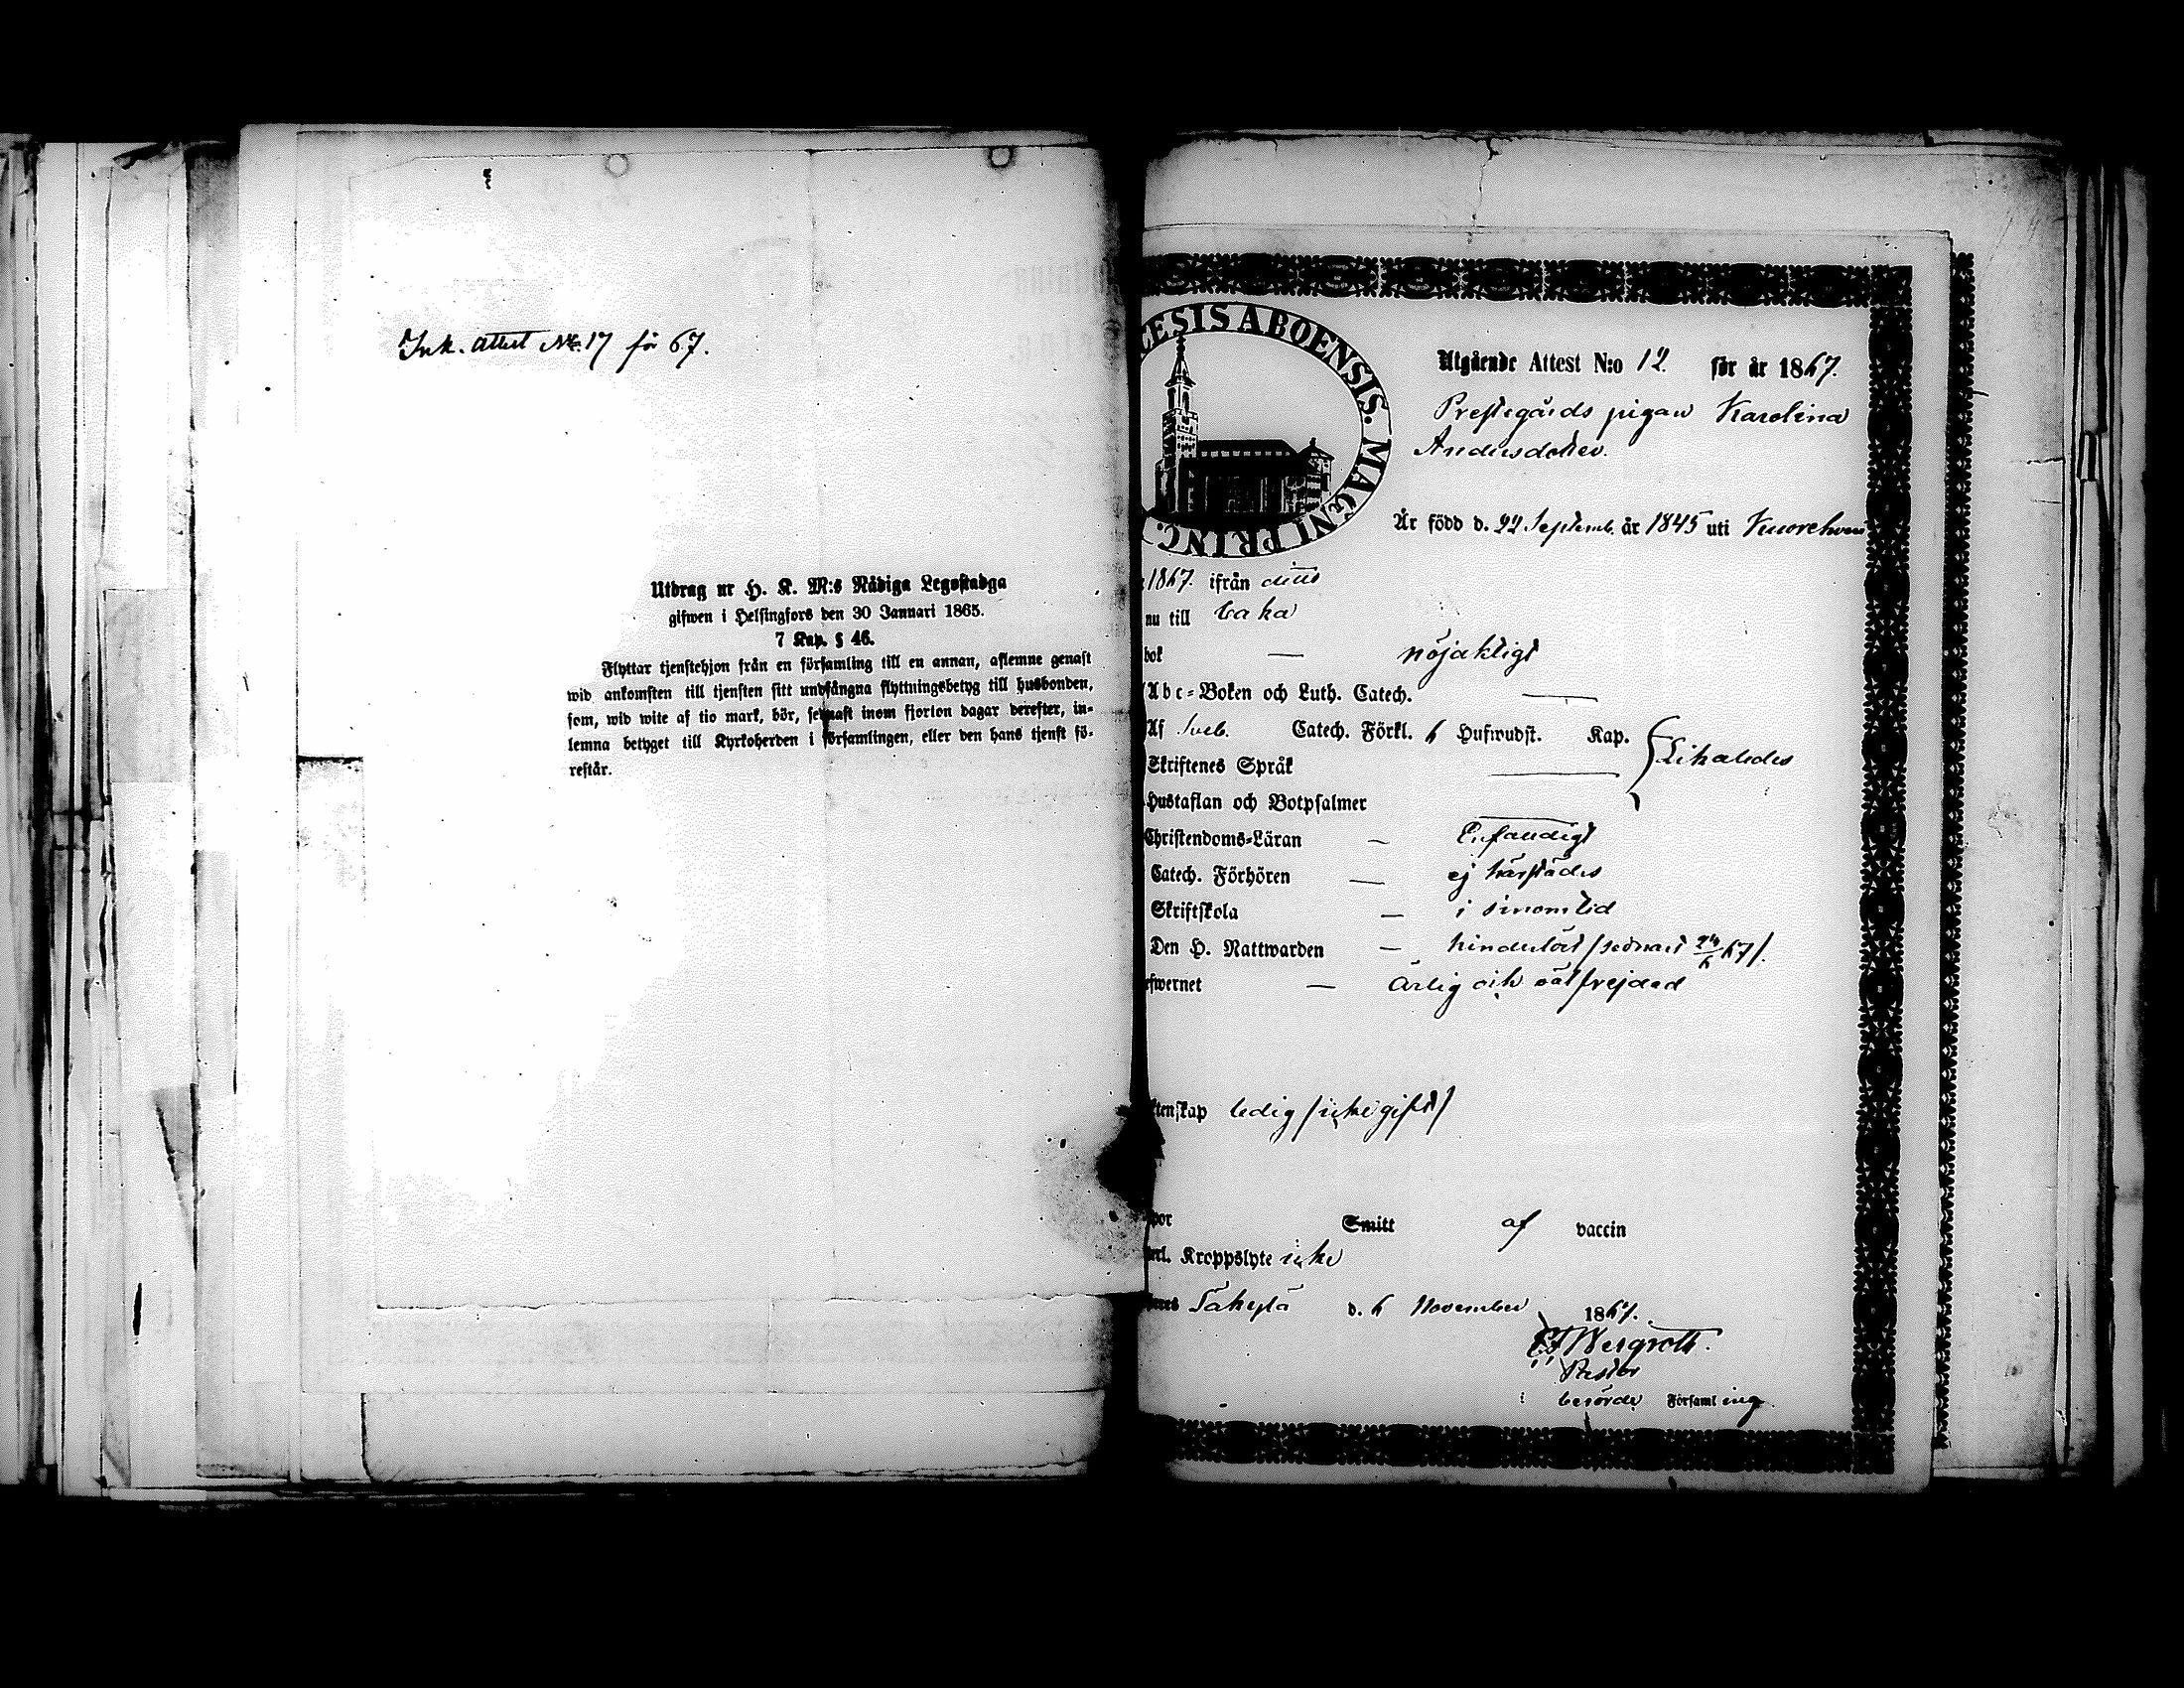 Ink. attest No. 17 för 67.
Utdrag ur H. K. M:s Nådiga Legostadga
gifwen i Helsingfors den 30 Januari 1865.
7 Kap. § 46.
Flyttar tjenstehjon från en församling till en annan, aflemne genast
wid ankomsten till tjensten sitt undfångna flyttningsbetyg till husbonden,
som, wid wite af tio mark, bör, sednast inom fjorton dagar derefter, in-
lemna betyget till Kyrkoherden i församlingen, eller den hans tjenst fö-
restår.
CESIS ABOENSIS. MAGNI PRINC.
Utgående Attest N:o 12. för år 1867.
Prestegårds pigan Karolina
Andersdotter.
Är född d. 22 Septemb. år 1845 uti
1867. ifrån
nu till taka
bok — nöjaktigt
Abc-Boken och Luth. Catech. —
Af Sveb. Catech. Förkl. 6 Hufwudst. Kap.
Skriftenes Språk — Likaledes
Hustaflan och Botpsalmer
Christendoms-Läran — Enfaldigt
Catech. Förhören — ej härstädes
Skriftskola — i sinom tid
Den H. Nattwarden — hinderlöst /sednast 24/6 67/.
efwernet — ärlig och välfrejdad
ktenskap ledig /icke gift/
por Smitt af vaccin
Kroppslyte icke
Säkylä d. 6 November 1867.
Bergroth.
Pastor
i berörde Församling.